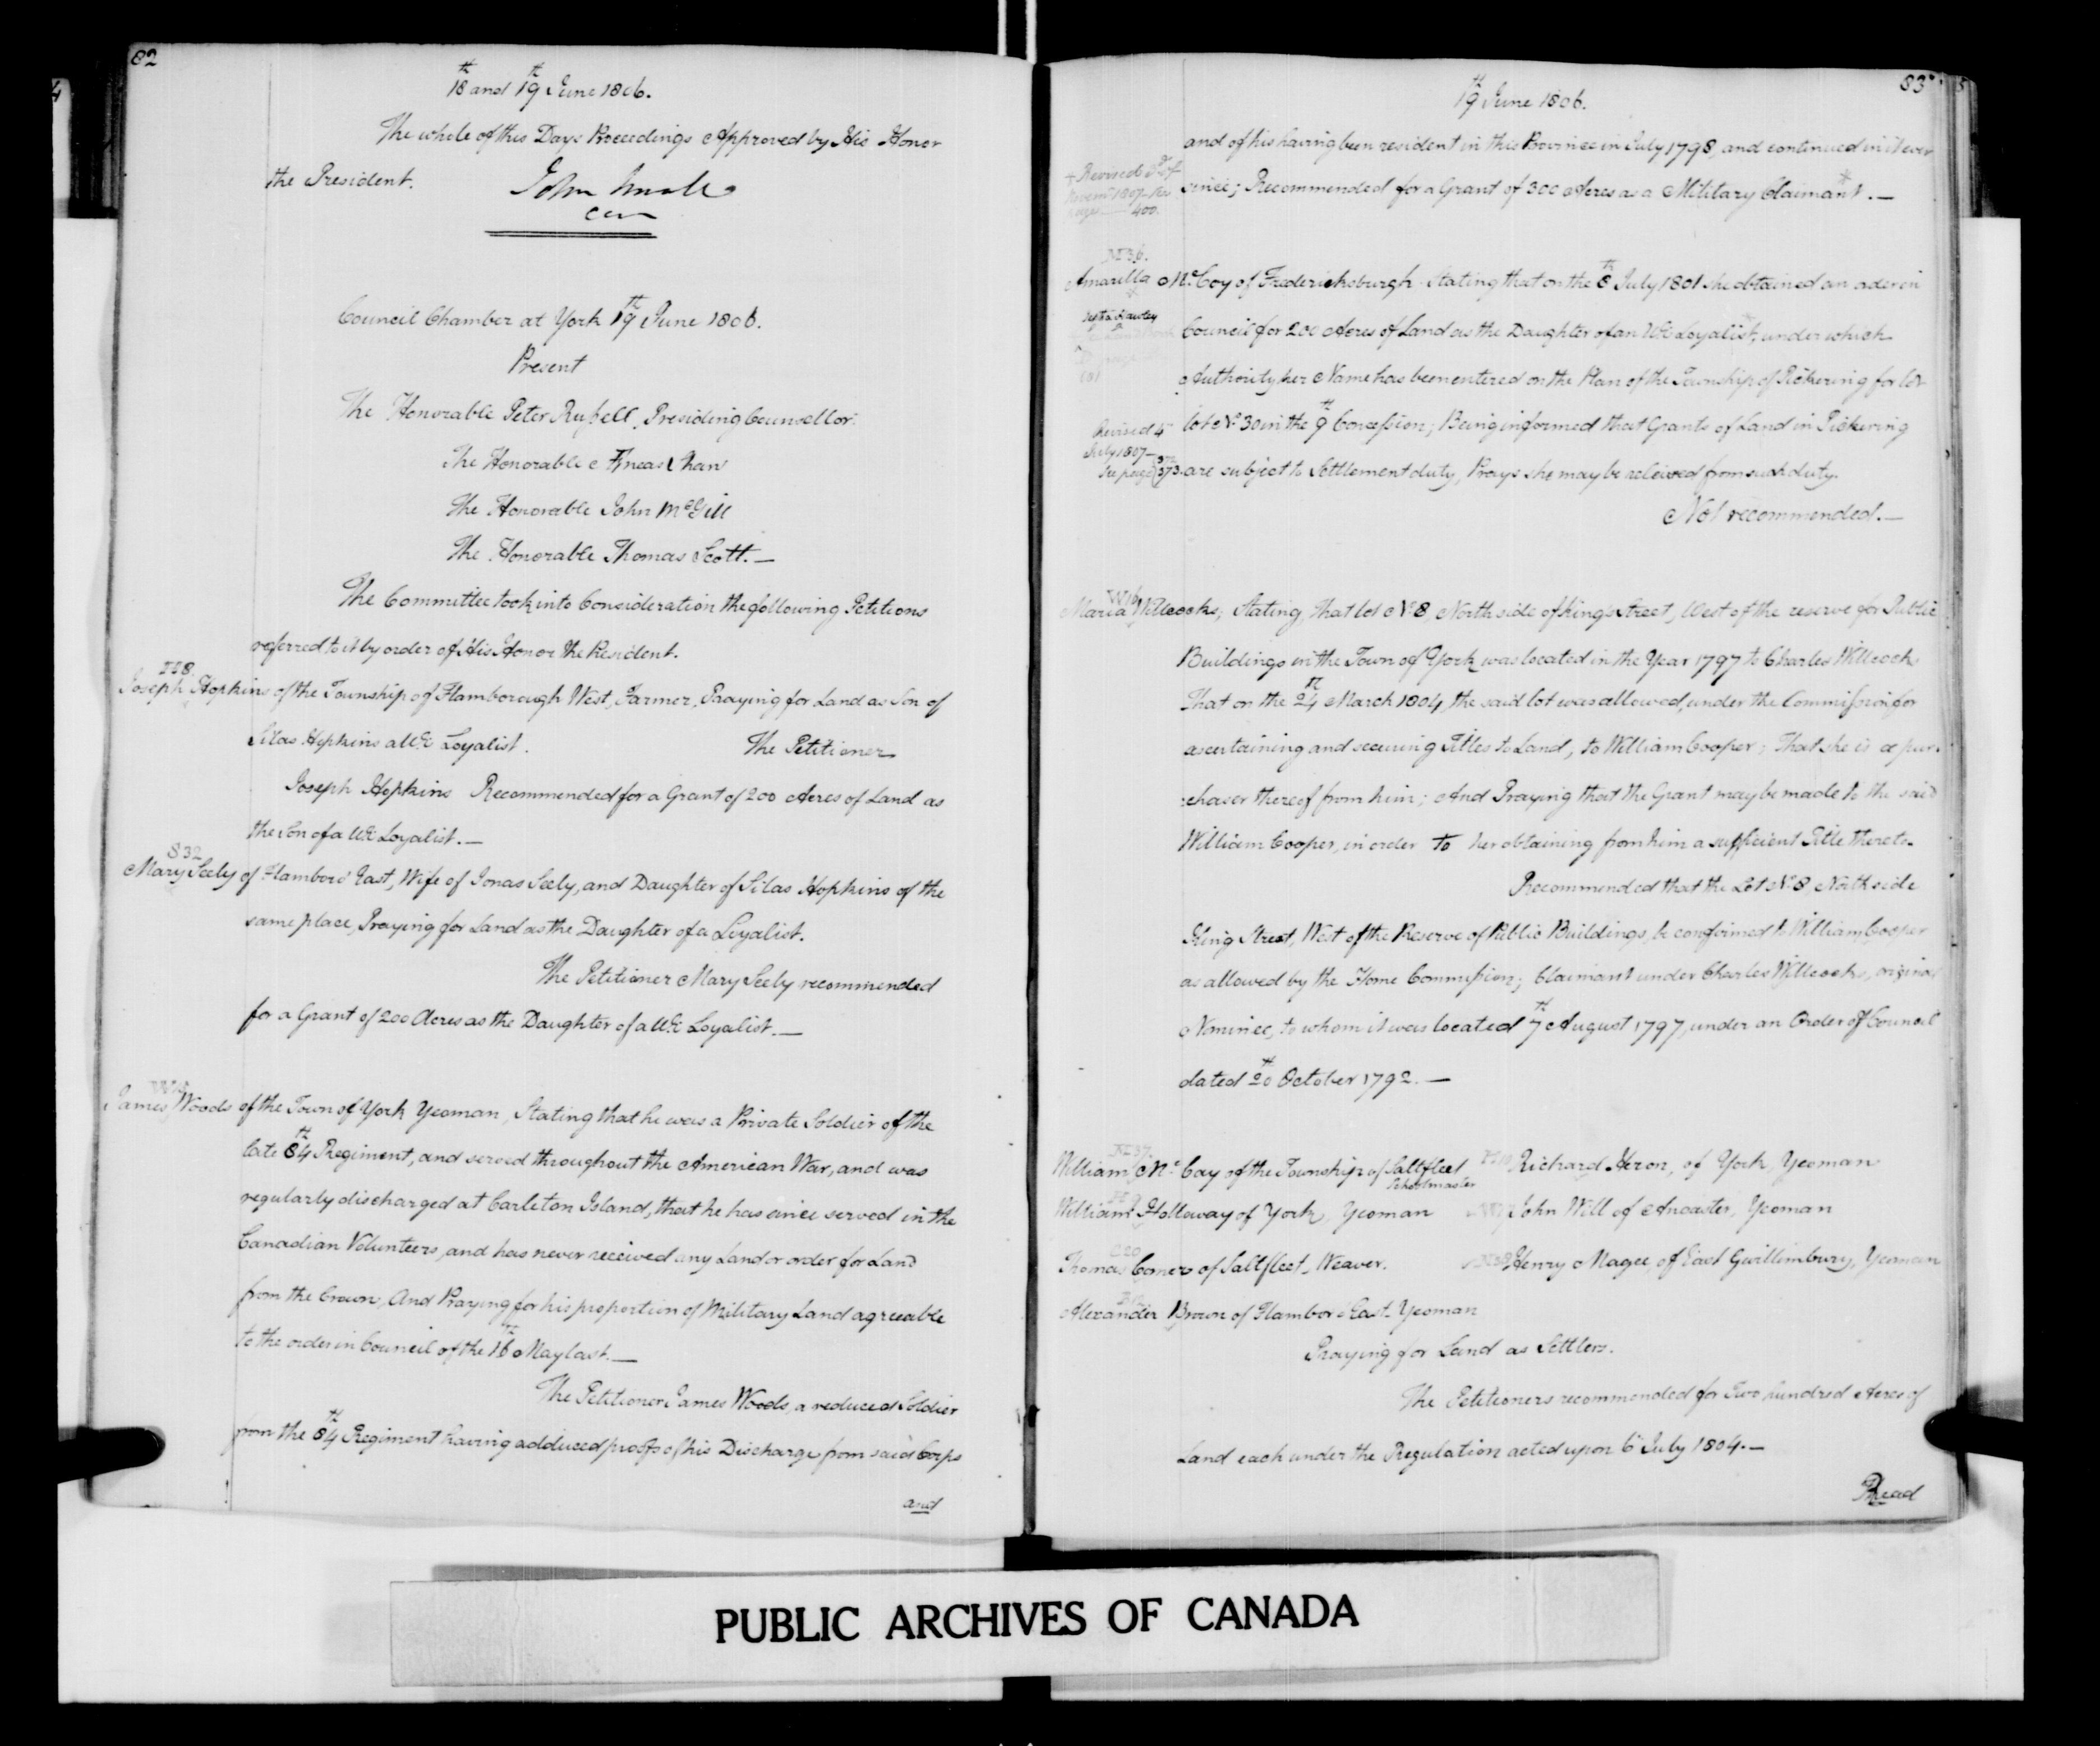 82
18th and 19th June 1806.
The whole of this Days Proceedings Approved by His Honor
the President.
John
Council Chamber at York 19th June 1806.
Present
The Honorable Peter Russell, Presiding Councellor.
The Honorable Æneas Shaw
The Honorable John McGill
The Honorable Thomas Scott.—
The Committee took into Consideration the following Petitions
referred to it by order of His Honor the President.
H8.
Joseph Hopkins of the Township of Flamborough West, Farmer, Praying for Land as Son of
Silas Hopkins a UE Loyalist. The Petitioner
Joseph Hopkins Recommended for a Grant of 200 Acres of Land as
the Son of a UE Loyalist.—
S32
Mary Seely of Flambord East, Wife of Jonas Seely, and Daughter of Silas Hopkins of the
same place, Praying for Land as the Daughter of a Loyalist.
The Petitioner Mary Seely recommended
for a Grant of 200 Acres as the Daughter of a UE Loyalist.—
James Woods of the Town of York Yeoman, Stating that he was a Private Soldier of the
late 84th Regiment, and served throughout the American War, and was
regularly discharged at Carleton Island, that he has since served in the
Canadian Volunteers, and has never received any Land or order for Land
from the Crown, And Praying for his proportion of Military Land agreeable
to the order in Council of the 16th May last.—
The Petitioner James Woods, a reduced Soldier
from the 84th Regiment having adduced proofs of his Discharge from said Corps
and
83
19th June 1806.
and of his having been resident in this Province in July 1798, and continued in it ever
since; Recommended for a Grant of 300 Acres as a Military Claimant.—
+ Revised 3d of
Novemr 1807. See
page — 400.
M36.
Amarilla McCoy of Fredericksburgh Stating that on the 8th July 1801 she obtained an order in
Council for 200 Acres of Land as the Daughter of an UE Loyalist, under which
Authority her Name has been entered on the Plan of the Township of Pickering for lot
lot No 30 in the 9th Concession; Being informed that Grants of Land in Pickering
are subject to Settlement duty, Prays she may be releived from such duty.
Revised 4th
July 1807—
See page 373.
Not recommended.—
W16
Maria Willcocks; Stating, that lot No 8 North side of Kings Street, West of the reserve for Public
Buildings in the Town of York was located in the Year 1797 to Charles Willcocks
That on the 24th March 1804, the said lot was allowed, under the Commission for
ascertaining and securing Titles to Land, to William Cooper; That she is a pur-
:chaser thereof from him; And Praying that the Grant may be made to the said
William Cooper, in order to her obtaining from him a sufficient Title thereto.
Recommended that the Lot No 8, North side
King Street, West of the Reserve of Public Buildings, be confirmed to William Cooper
as allowed by the Home Commission; Claimant under Charles Willcocks, original
Nominee, to whom it was located 7th August 1797, under an Order of Council
dated 20th October 1792.—
M37.
William McCay of the Township of Saltfleet Schoolmaster
H10 Richard Heron, of York, Yeoman
H9
William Holloway of York, Yeoman
John Will of Ancaster, Yeoman
C20
Thomas Comers of Saltfleet, Weaver.
M38 Henry Magee, of East Gwillimbury, Yeoman
Alexander Brown of Flambor East Yeoman
Praying for Land as Settlers.
The Petitioners recommended for Two hundred Acres of
Land each under the Regulation acted upon 6th July 1804.—
Read
PUBLIC ARCHIVES OF CANADA